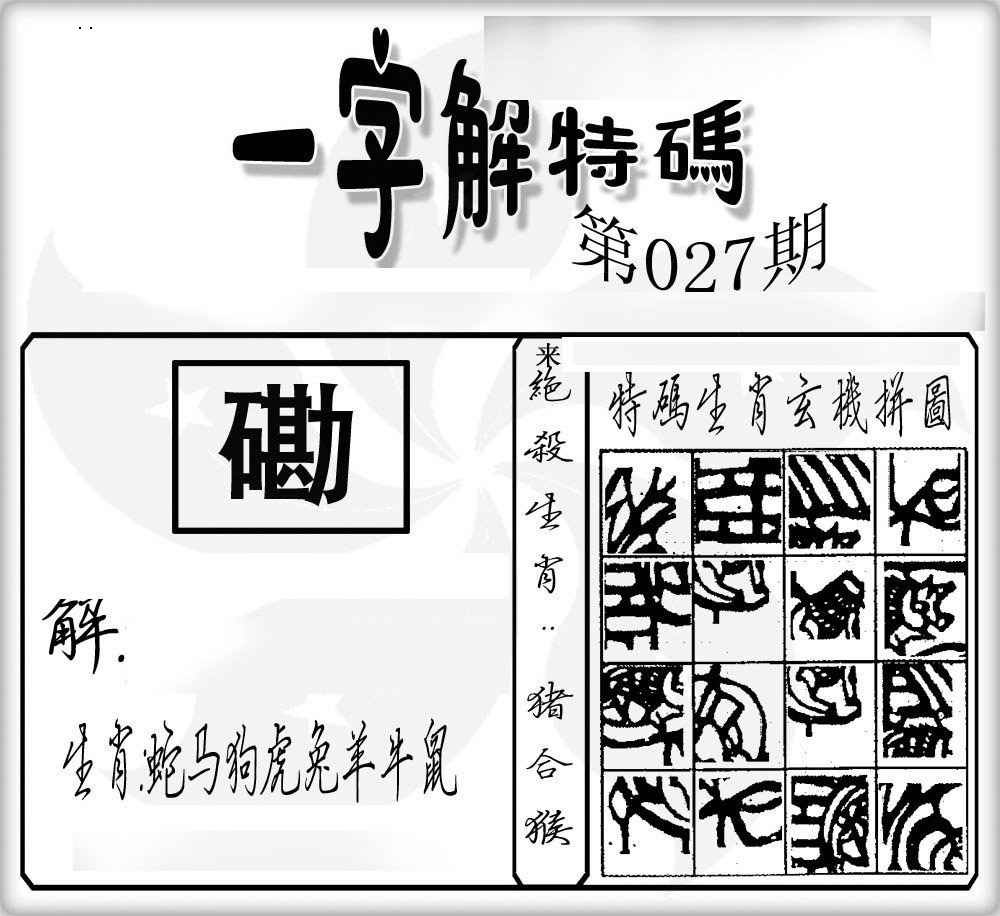 一字解特碼
第027期
磡
解.
生肖:蛇马狗虎兔羊牛鼠
来
絕殺生肖:猪合猴
特碼生肖玄機拼圖